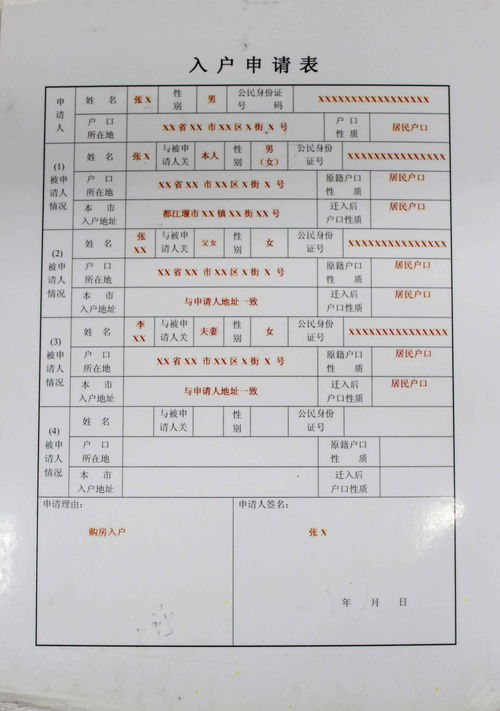 入户申请表
申请人 姓名 张X 性别 男 公民身份证号码 XXXXXXXXXXXXXXXX
户口所在地 XX省XX 市XX区X街X 号 户口性质 居民户口
(1)被申请人情况 姓名 张X 与被申请人关 本人 性别 男(女) 公民身份证号 XXXXXXXXXXXXXX
户口所在地 XX省XX 市XX区X街X 号 原籍户口性质 居民户口
本市入户地址 都江堰市XX镇XX街XX号 迁入后户口性质 居民户口
(2)被申请人情况 姓名 张XX 与被申请人关 父女 性别 女 公民身份证号 XXXXXXXXXXXXXX
户口所在地 XX省XX 市XX区X街X 号 原籍户口性质 居民户口
本市入户地址 与申请人地址一致 迁入后户口性质 居民户口
(3)被申请人情况 姓名 李XX 与被申请人关 夫妻 性别 女 公民身份证号 XXXXXXXXXXXXXX
户口所在地 XX省XX 市XX区X街X 号 原籍户口性质 居民户口
本市入户地址 与申请人地址一致 迁入后户口性质 居民户口
(4)被申请人情况 姓名 与被申请人关 性别 公民身份证号
户口所在地 原籍户口性质
本市入户地址 迁入后户口性质
申请理由: 申请人签名:
购房入户 张X
年 月 日